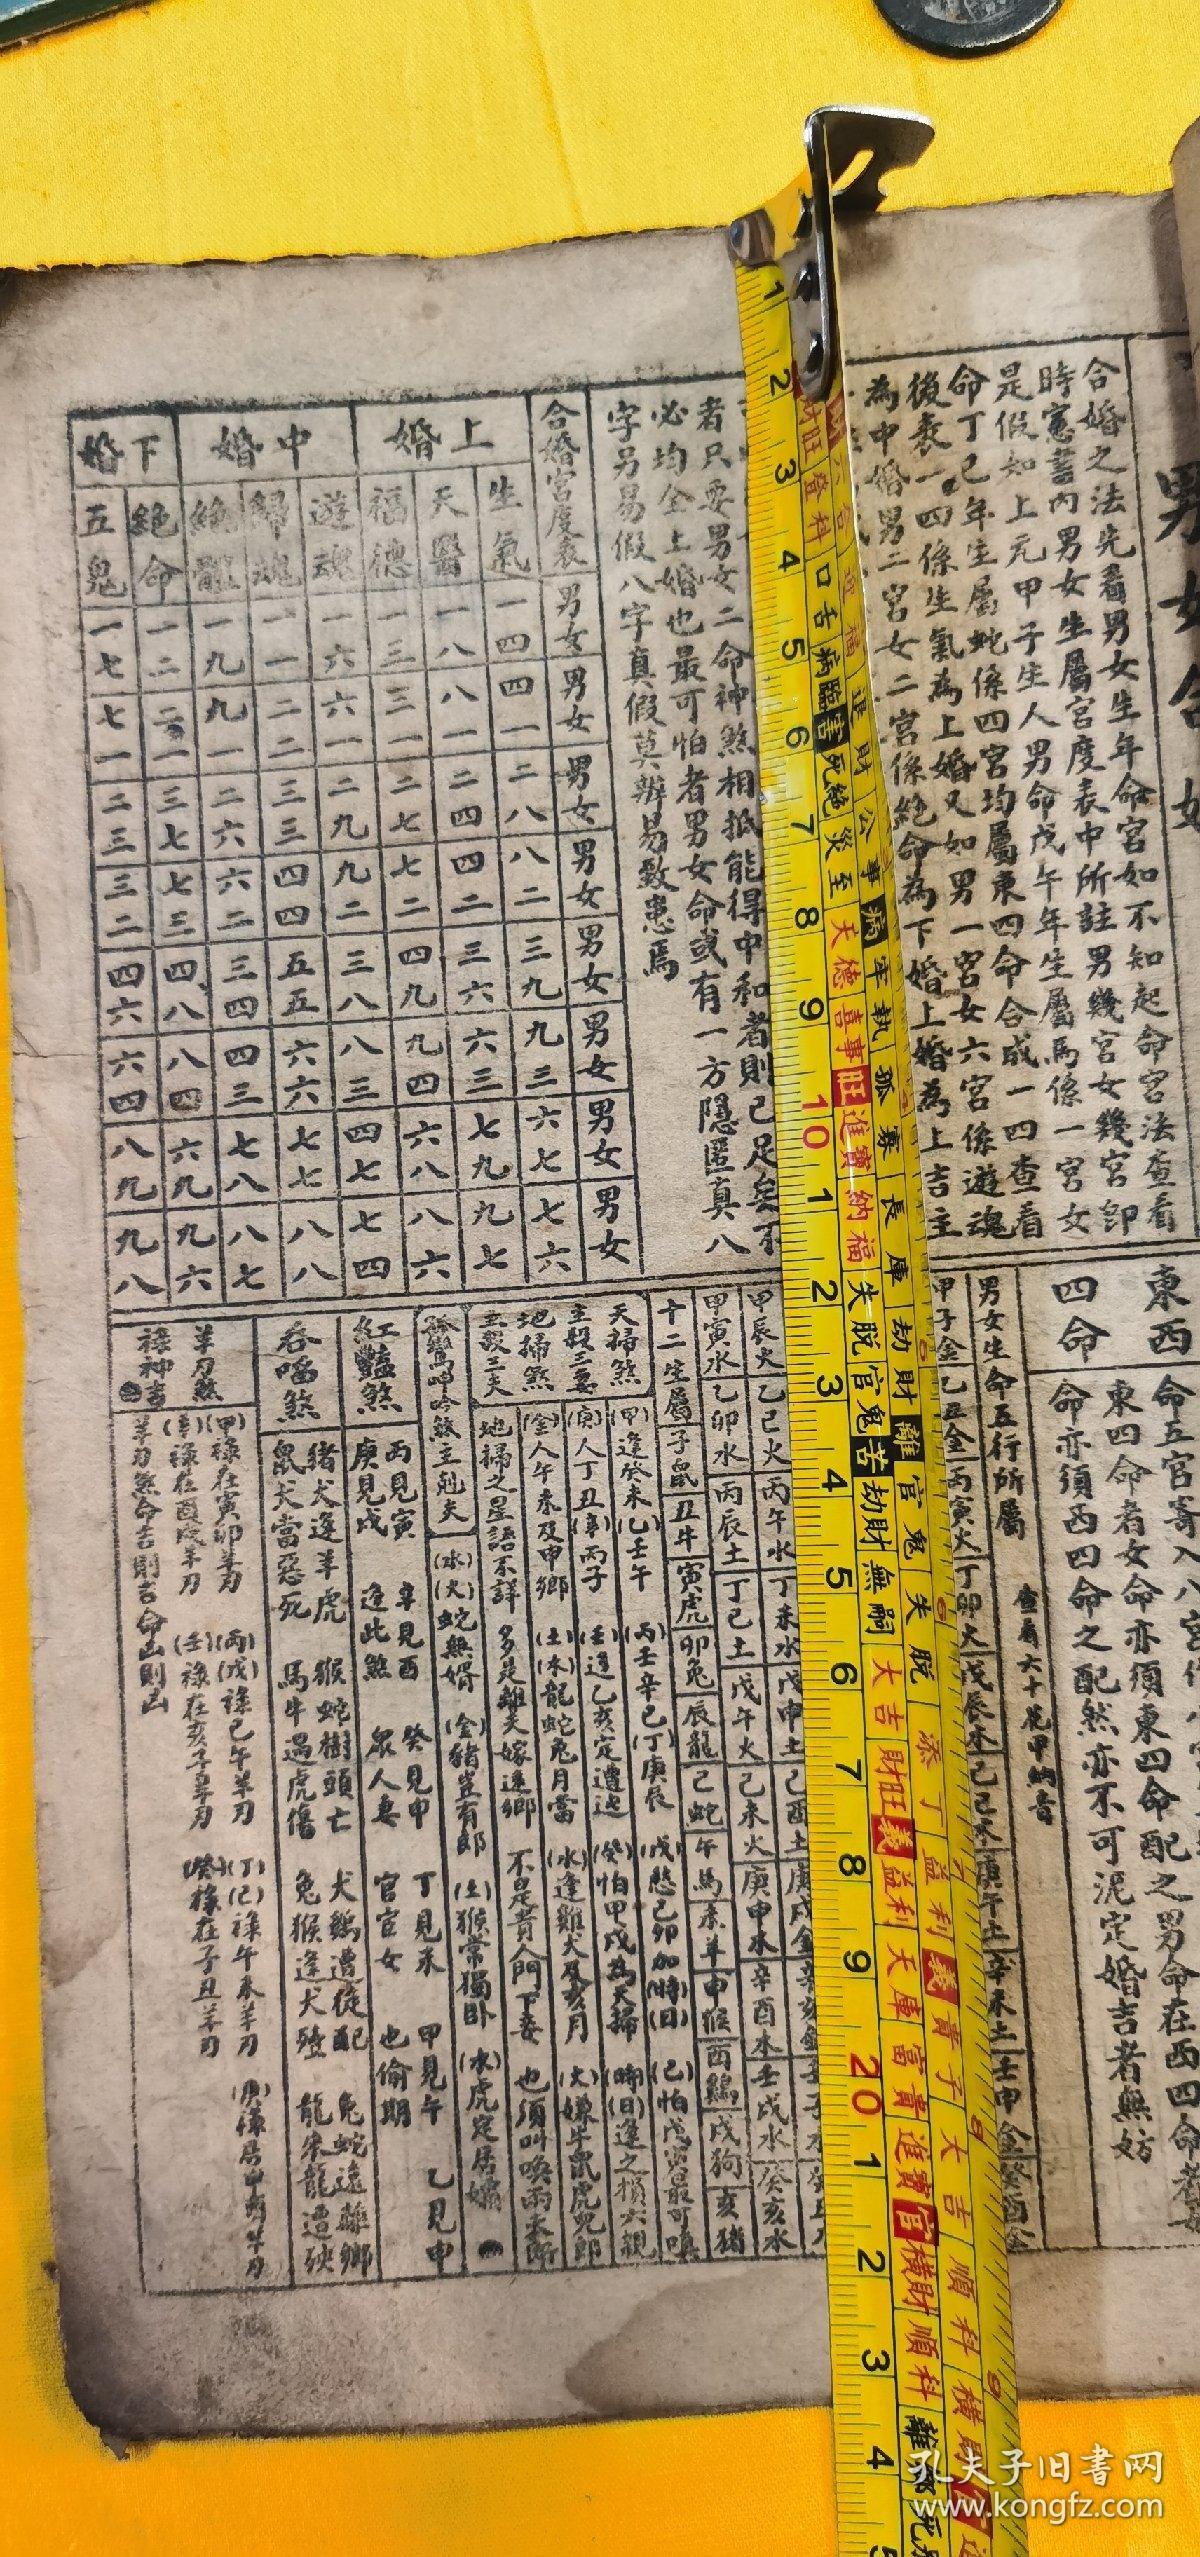 合婚之法先看男女生年命宮如不知起命宮法查看
時憲書內男女生屬宮度表中所註男幾宮女幾宮即
是假如上元甲子生人男命戊午年生屬馬係一宮女
命丁巳年生屬蛇係四宮均屬東四命合成一四查看
後表一四係生氣為上婚又如男一宮女六宮係遊魂
為中婚男二宮女二宮係絕命為下婚上婚為上吉主
者只要男女二命神煞相抵能得中和者則已足矣
必均全上婚也最可怕者男女命或有一方隱匿真八
字另易假八字真假莫辨易致患焉
合婚宮度表 男女 男女 男女 男女 男女 男女 男女 男女
上婚
生氣 一四 四一 二八 八二 三九 九三 六七 七六
天醫 一八 八一 二四 四二 三六 六三 七九 九七
福德 一三 三一 二七 七二 四九 九四 六八 八六
中婚
遊魂 一六 六一 二九 九二 三八 八三 四七 七四
歸魂 一一 二二 三三 四四 五五 六六 七七 八八
絶體 一九 九一 二六 六二 三四 四三 七八 八七
下婚
絕命 一二 二一 三七 七三 四八 八四 六九 九六
五鬼 一七 七一 二三 三二 四六 六四 八九 九八
東西
四命
東四命者女命亦須東四命配之男命在西四命者女
命亦須西四命之配然亦不可泥定婚吉者無妨
男女生命五行所屬 查看六十花甲納音
甲子金 乙丑金 丙寅火 丁卯火 戊辰木 己巳木 庚午土 辛未土 壬申金 癸酉金
甲辰火 乙巳火 丙午水 丁未水 戊申土 己酉土 庚戌金 辛亥金
甲寅水 乙卯水 丙辰土 丁巳土 戊午火 己未火 庚申木 辛酉木 壬戌水 癸亥水
十二生屬 子鼠 丑牛 寅虎 卯兔 辰龍 巳蛇 午馬 未羊 申猴 酉鷄 戌狗 亥豬
天掃煞
主殺三妻
(甲)逢癸未(乙)壬午 (丙)壬辛巳(丁)庚辰 (戊)愁己卯加(時)(日) (己)怕戊寅最可嗔
(庚)人丁丑(辛)丙子 (壬)逢乙亥定遭迍 (癸)怕甲戌為天掃 (時)(日)逢之損六親
地掃煞
主殺三夫
(金)人午未及申鄉 (土)(木)龍蛇兔月當 (水)逢雞犬及亥月 (火)嫌牛鼠虎兒郎
地掃之星語不詳 多是離夫嫁遠鄉 不是貴人門下妾 也須叫喚兩夫郎
孤鸞呻吟煞主剋夫 (木)(火)蛇無婿 (金)豬豈有郎 (土)猴常獨卧 (水)虎定居孀
紅豔煞
丙見寅 辛見酉 癸見申 丁見未 甲見午 乙見申
庚見戌 逢此煞 眾人妻 官宦女 也偷期
吞啗煞
猪犬逢羊虎 猴蛇樹頭亡 犬鷄遭徒配 兔蛇遠離鄉
鼠犬當惡死 馬牛遇虎傷 兔猴逢犬 龍朱龍遭殃
羊刃煞
祿神吉
(甲)祿在寅卯羊刃 (丙)(戊)祿巳午羊刃 (丁)(己)祿午未羊刃 (庚)祿居申酉羊刃
(辛)祿在酉戌羊刃 (壬)祿在亥子羊刃 (癸)祿在子丑羊刃
羊刃煞命吉則吉命凶則凶
1
2
3
4
5
6
7
8
9
10
1
2
3
4
5
6
7
8
9
20
1
2
3
4
5
財旺 登科 口舌 病臨 害 死絕 災至 天德 喜事 旺 進寶 納福 失脫 官鬼 苦 劫財 無嗣 大吉 財旺 義 益利 天庫 富貴 進寶 官 橫財 順科 離鄉 死別
迎福 退財 公事 病 牢執 孤寡 長庫 劫財 離 官鬼 失脫 添丁 益利 義 貴子 大吉 順科 橫財 官
孔夫子旧書网
www.kongfz.com